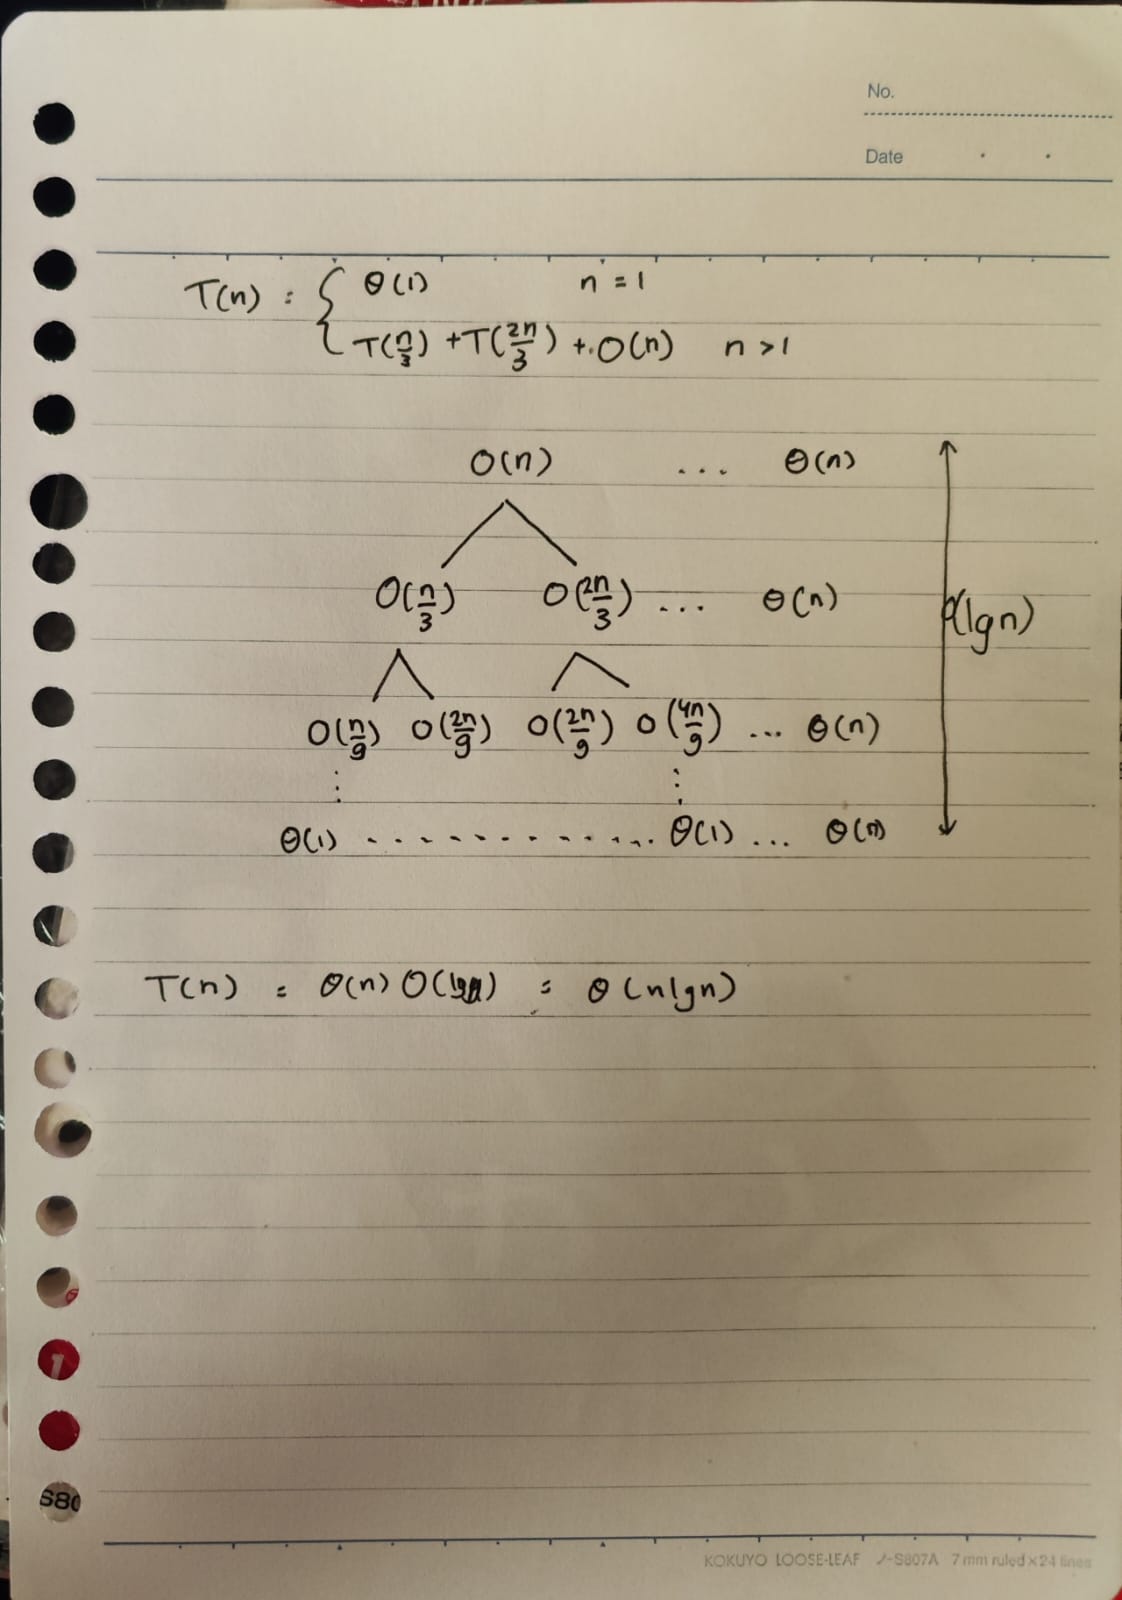 No.
Date
T(n) = { Θ(1) n = 1
T(n/3) + T(2n/3) + O(n) n > 1
O(n) ... Θ(n)
O(n/3) O(2n/3) ... Θ(n)
O(lgn)
O(n/9) O(2n/9) O(2n/9) O(4n/9) ... Θ(n)
⋮ ⋮
Θ(1) ............... Θ(1) ... Θ(n)
T(n) = Θ(n) O(lgn) = Θ(nlgn)
1
S80
KOKUYO LOOSE-LEAF ノ-S807A 7 mm ruled×24 lines